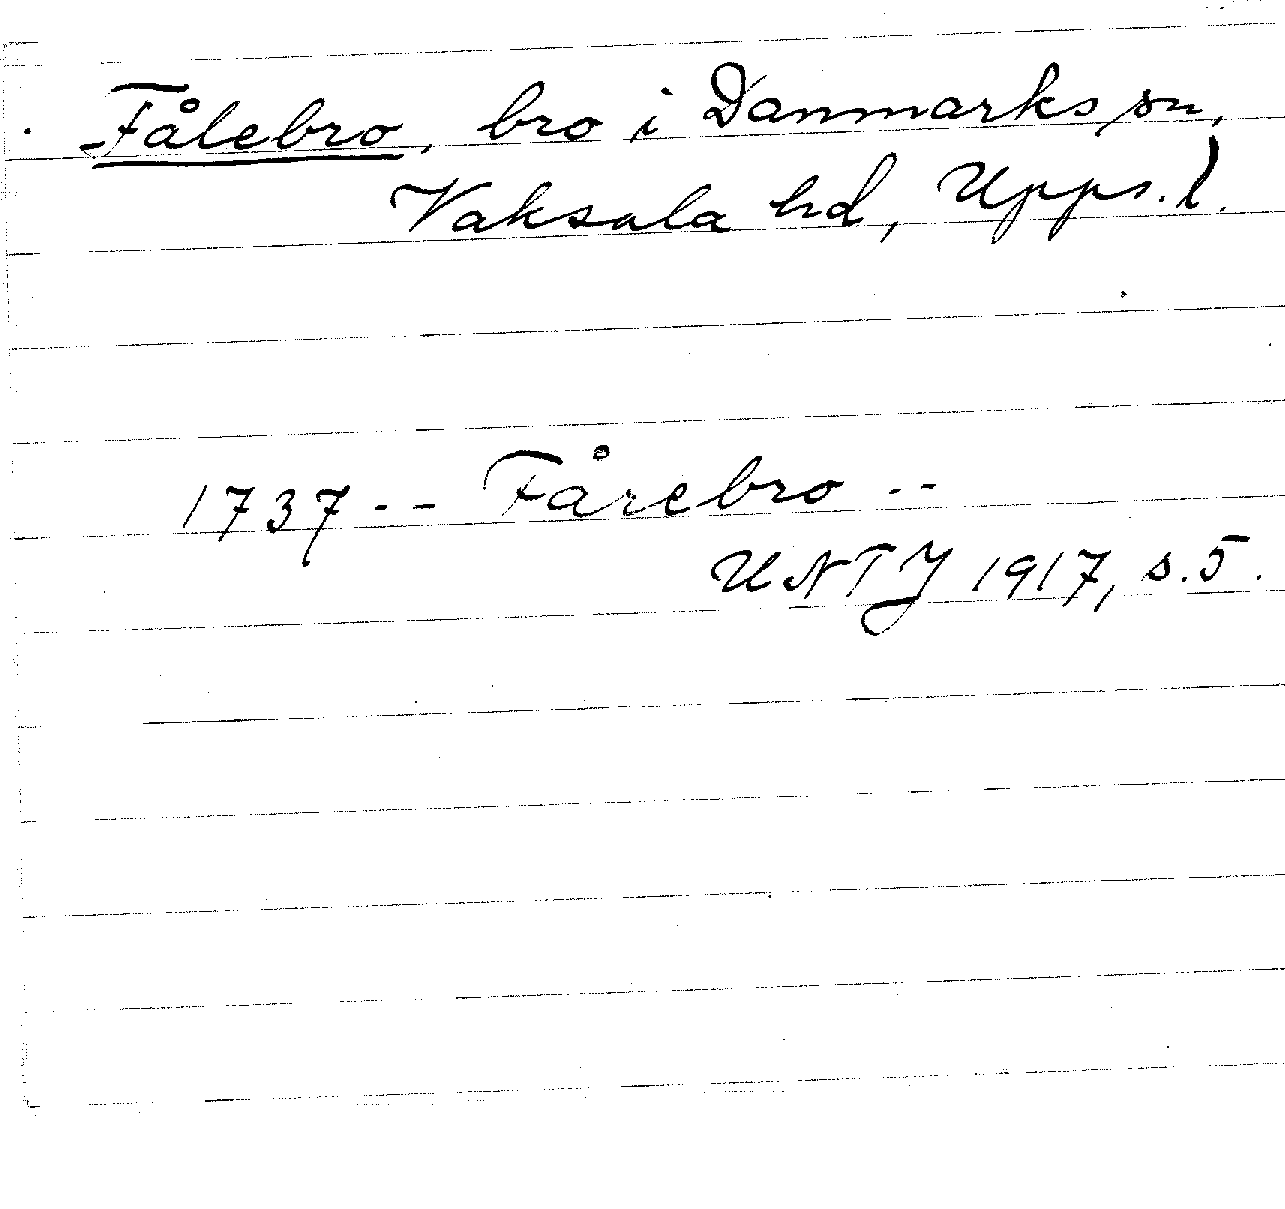 Fålebro, bro i Danmarks sn,
Vaksala hd, Upps. l.
1737 -- Fårebro --
UNTJ 1917, s. 5.